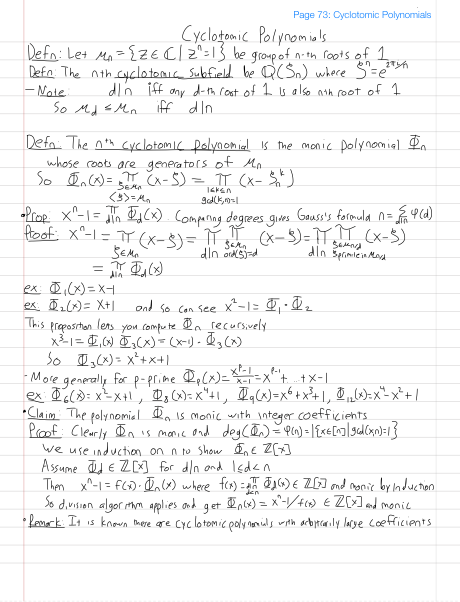 Page 73: Cyclotomic Polynomials
Cyclotomic Polynomials
Defn: Let μₙ = {z ∈ ℂ | zⁿ = 1} be group of n-th roots of 1
Defn: The nth cyclotomic subfield be Q(ζₙ) where ζₙ = e^{2πi/n}
- Note: d|n iff any d-th root of 1 is also nth root of 1
So μ_d ≤ μₙ iff d|n
Defn: The nth cyclotomic polynomial is the monic polynomial Φₙ
whose roots are generators of μₙ
So Φₙ(x) = ∏_{ζ∈μₙ, <ζ>=μₙ} (x-ζ) = ∏_{1≤k≤n, gcd(k,n)=1} (x-ζₙᵏ)
• Prop: xⁿ-1 = ∏_{d|n} Φ_d(x). Comparing degrees gives Gauss's formula n = Σ_{d|n} φ(d)
Proof: xⁿ-1 = ∏_{ζ∈μₙ} (x-ζ) = ∏_{d|n} ∏_{ζ∈μₙ, ord(ζ)=d} (x-ζ) = ∏_{d|n} ∏_{ζ∈μ_d, ζ primitive in μ_d} (x-ζ)
= ∏_{d|n} Φ_d(x)
ex: Φ₁(x) = x-1
ex: Φ₂(x) = x+1 and so can see x²-1 = Φ₁·Φ₂
This proposition lens you compute Φₙ recursively
x³-1 = Φ₁(x) Φ₃(x) = (x-1)·Φ₃(x)
So Φ₃(x) = x²+x+1
- More generally for p-prime Φ_p(x) = (x^p-1)/(x-1) = x^{p-1}+...+x-1
ex: Φ₆(x) = x²-x+1, Φ₈(x) = x⁴+1, Φ₉(x) = x⁶+x³+1, Φ₁₂(x) = x⁴-x²+1
• Claim: The polynomial Φₙ is monic with integer coefficients
Proof: Clearly Φₙ is monic and deg(Φₙ) = φ(n) = |{x∈[n] | gcd(x,n)=1}|
We use induction on n to show Φₙ ∈ Z[x]
Assume Φ_d ∈ Z[x] for d|n and 1≤d<n
Then xⁿ-1 = f(x)·Φₙ(x) where f(x) = ∏_{d|n, d<n} Φ_d(x) ∈ Z[x] and monic by Induction
So division algorithm applies and get Φₙ(x) = xⁿ-1/f(x) ∈ Z[x] and monic
• Remark: It is known there are cyclotomic polynomials with arbitrarily large coefficients